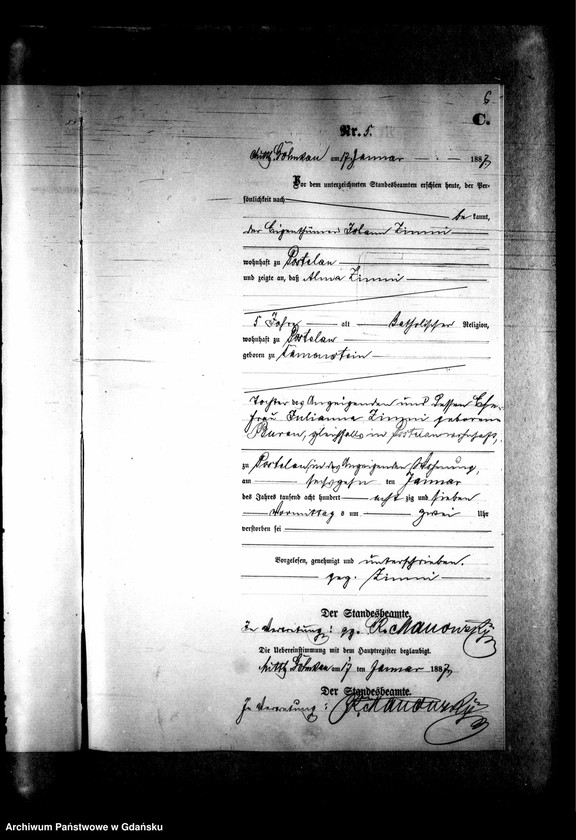 6
C.
Nr. 5.
Mittel Gölmkau am 17 Januar 1887.
Vor dem unterzeichneten Standesbeamten erschien heute, der Per-
sönlichkeit nach
be kannt,
der Eigenthümer Johann Zimni
wohnhaft zu Postelau
und zeigte an, daß Alma Zimni
5 Jahre alt katholischer Religion,
wohnhaft zu Postelau
geboren zu
Tochter des Anzeigenden und dessen Ehe-
frau Julianna Zimni geborene
gleichfalls in Postelau wohnhaft,
zu Postelau in des Anzeigenden Wohnung,
am sechszehn ten Januar
des Jahres tausend acht hundert acht zig und sieben
Vormittag s um zwei Uhr
verstorben sei
Vorgelesen, genehmigt und unterschrieben.
gez. Zimni
Der Standesbeamte.
In Vertretung: gz. R. Manowski
Die Uebereinstimmung mit dem Hauptregister beglaubigt.
Mittel Gölmkau am 17 ten Januar 1887.
Der Standesbeamte.
In Vertretung: R. Manowski
Archiwum Państwowe w Gdańsku